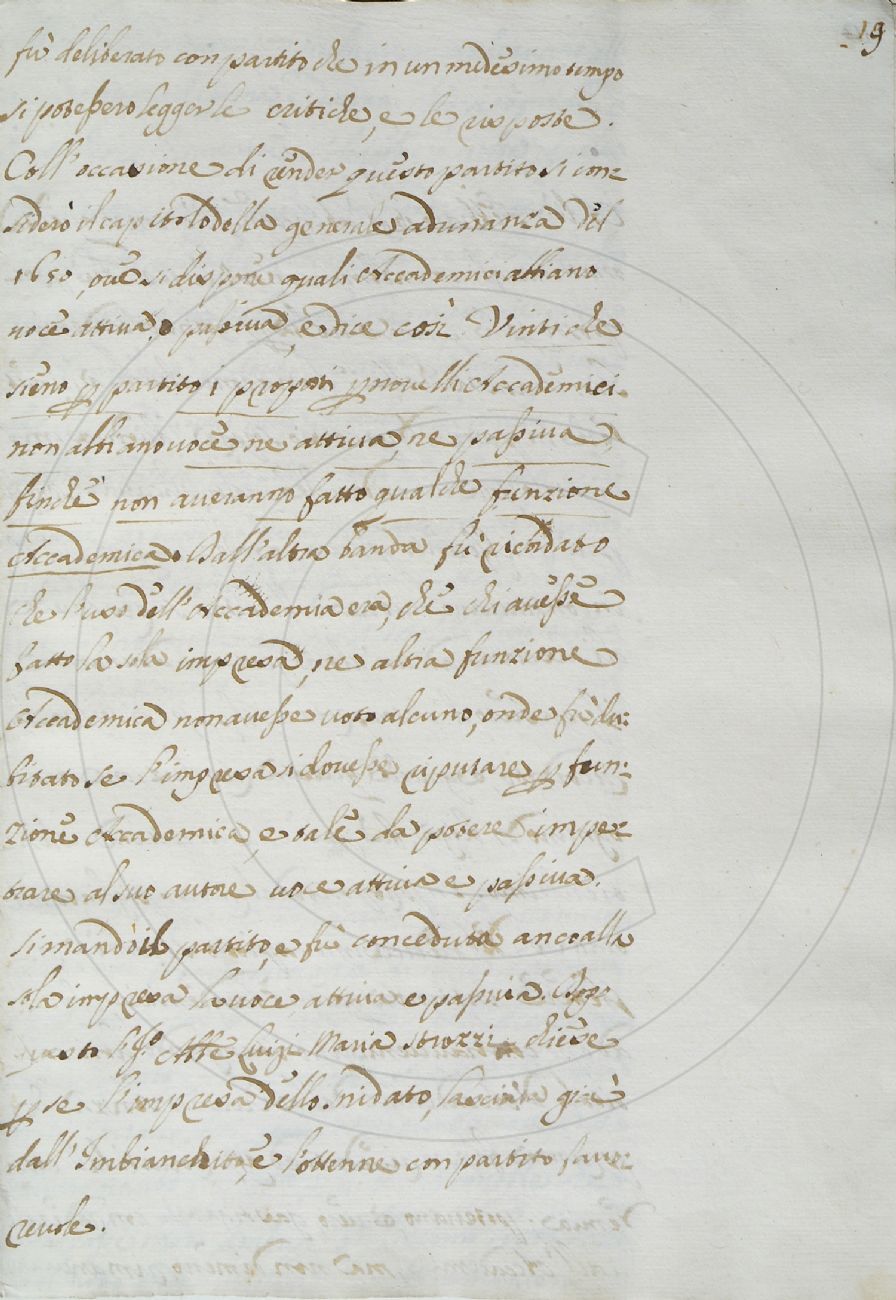 19
fù deliberato con partito che in un medesimo tempo
si potessero legger le critiche, e le risposte.
Coll'occasione di render questo partito si con=
siderò il capitolo della generale adunanza del
1650, oue si dispone quali Accademici abbiano
uoce attiua, o passiua, e dice così Vinti che
sieno p partito i proposti p nouelli Accademici
non abbiano uoce ne attiua, ne passiua
finchè non aueranno fatto qualche funzione
Accademica. Dall'altra banda fù ricordato
che l'uso dell'Accademia era, che chi auesse
fatto la sola impresa, ne altra funzione
Accademica non auesse uoto alcuno, onde fù du:
bitato se l'impresa si douesse riputare p fun:
zione Accademica, e tale da potere impe=
trare al suo autore uoce attiua e passiua.
Si mandò il partito, e fù conceduta anco alla
sola impresa la uoce attiua e passiua. Dopo
questo Abte Luigi Maria Strozzi chiese
p se l'impresa dello Snidato, lasciata già
dall'Imbianchito, e l'ottenne con partito fauo=
reuole.